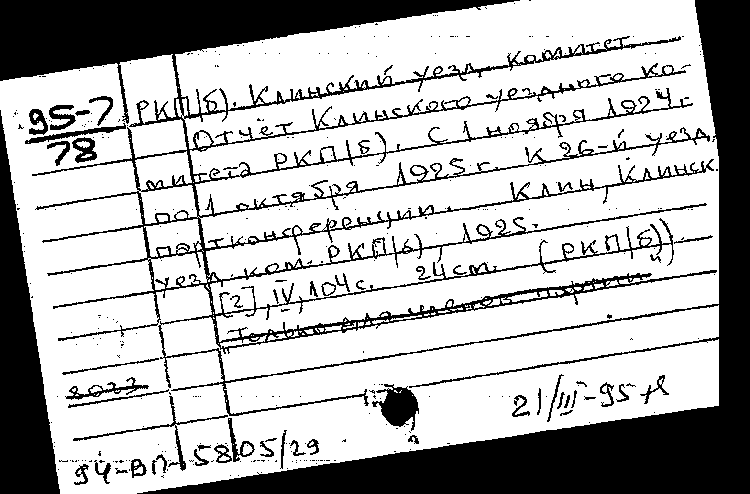 95-7
78
РКП(б). Клинский уезд. комитет.
Отчёт Клинского уездного ко-
митета РКП(б). С 1 ноября 1924 г.
по 1 октября 1925 г. К 26-й уезд.
партконференции. Клин, Клинск.
уезд. ком. РКП(б), 1925.
[2], IV, 104 с. 24 см. (РКП(б))
"Только для членов партии."
94-ВП-5805/29
21/III-95